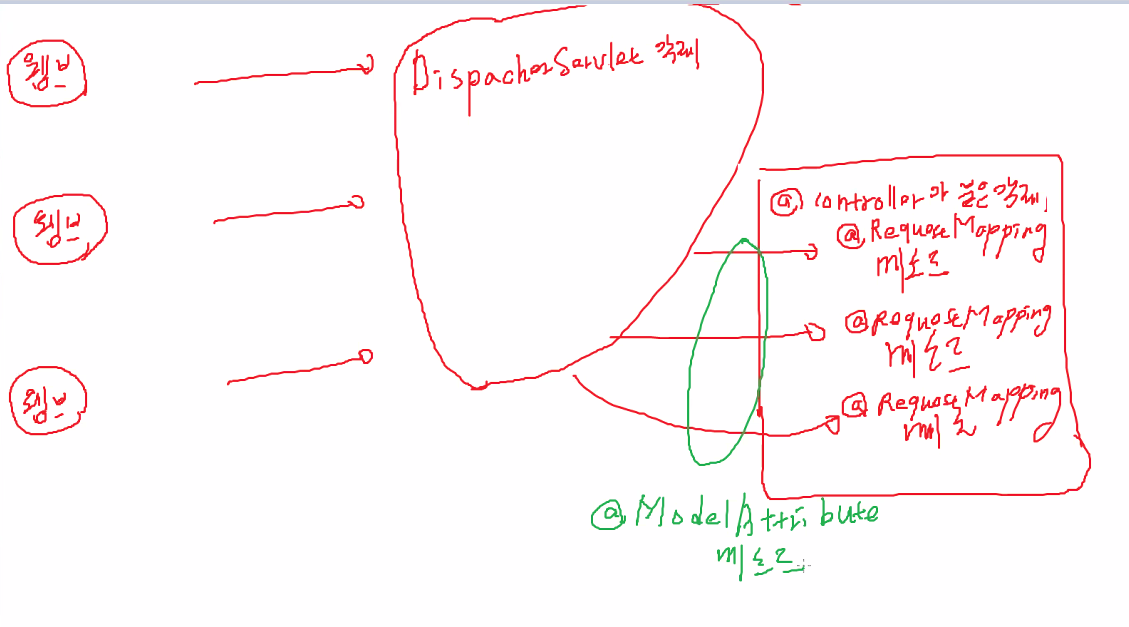 웹브
DispacherServlet 객체
웹브
@ controller가 붙은 객체
@RequestMapping
메소드
@RequestMapping
메소드
웹브
@RequestMapping
메소
@ModelAttribute
메소드